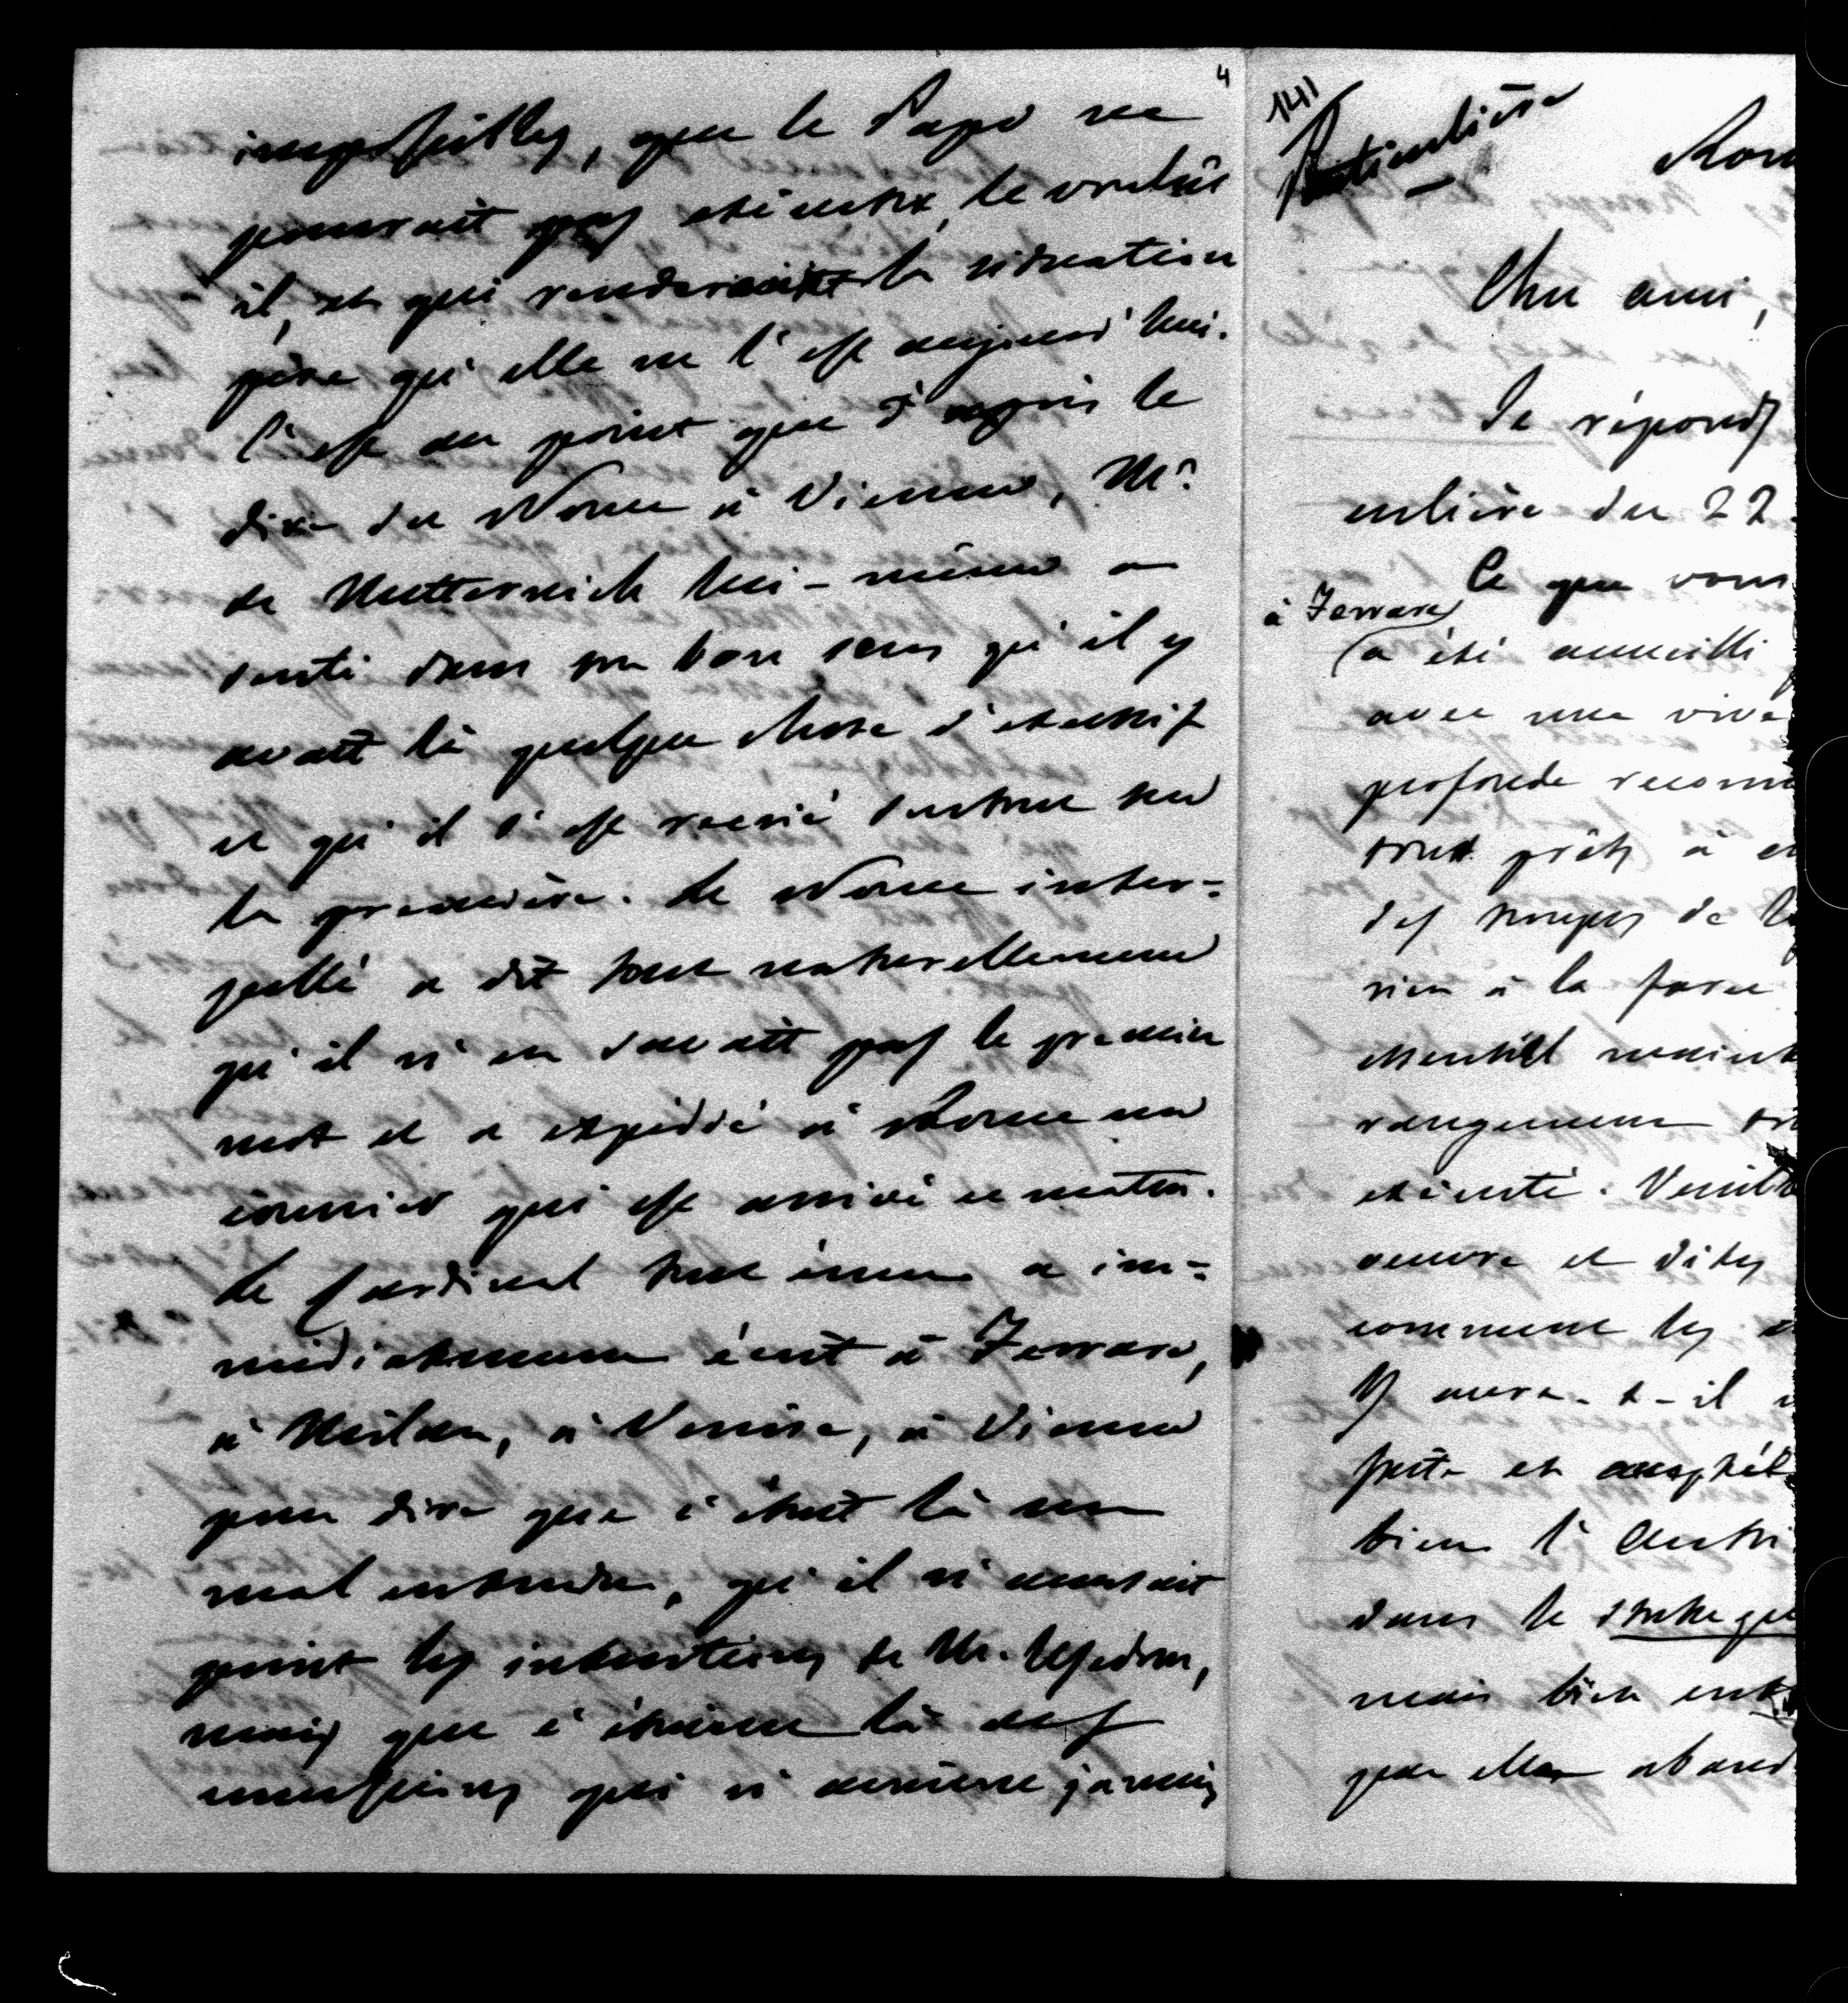 4
impossibles, que le Pape ne
pourrait pas exécuter, le voulût
il, et qui rendraient la situation
pire qu'elle ne l'est aujourd'hui.
C'est au point que d'après le
dire du Nonce à Vienne, Mr.
de Metternich lui-même a
senti dans son bon sens qu'il y
avait là quelque chose d'excessif
et qu'il s'est récrié surtout sur
la première. Le Nonce inter=
pellé a dit tout naturellement
qu'il n'en savait pas le premier
mot et a expédié à Rome un
courrier qui est arrivé ce matin.
Le Cardinal tout ému a im=
médiatement écrit à Ferrare,
à Milan, à Venise, à Vienne
pour dire que c'était là un
mal entendu, qu'il n'accusait
point les intentions de Mr. Usedom,
mais que c'étaient là des
conditions qui n'avaient jamais
141
Particulière
Rom
Cher ami,
Je réponds
culière du 22.
Ce que vous
à Ferrare
a été accueilli
avec une vive
profonde reconn
tout prêts à en
des troupes de l
rien à la force
essentiel maint
rangement soi
exécuté. Veuill
œuvre et dites
comment les
Y aura-t-il
juste et accepta
bien l'Autri
dans le statu qu
mais bien ent
que elle aband